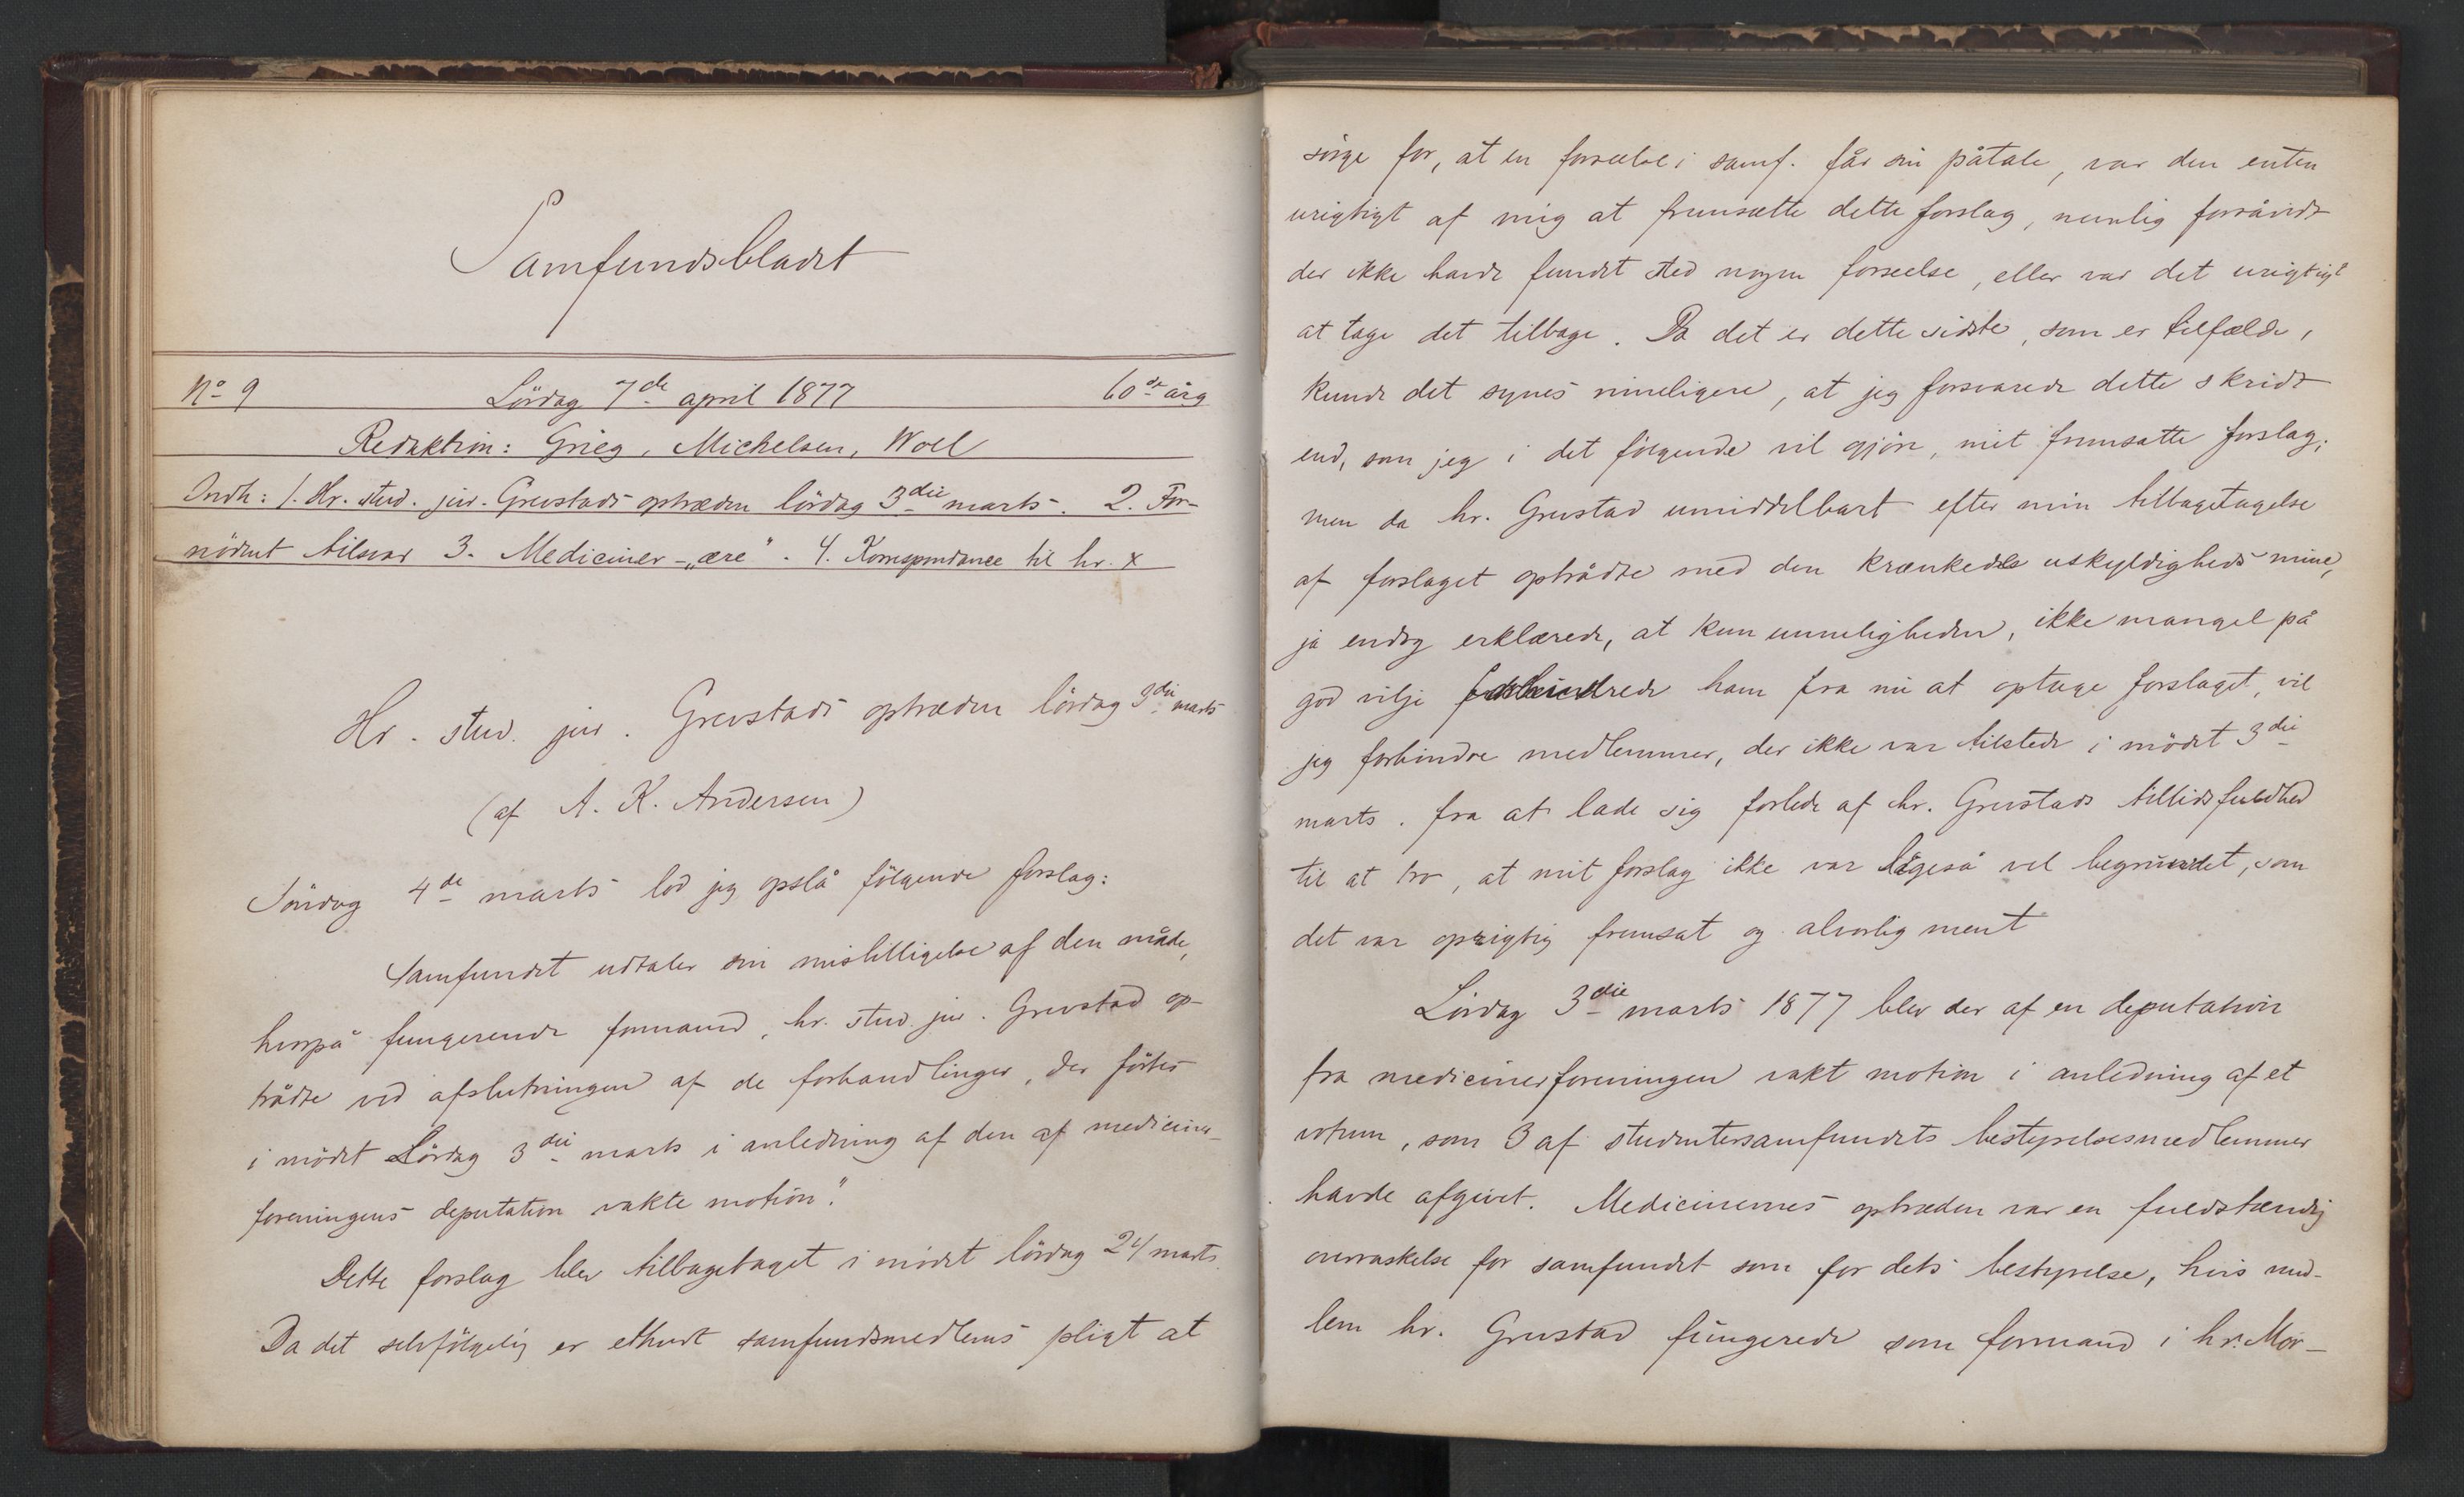 Samfundsbladet
No 9 Lördag 7de april 1877 60de årg
Redaktion: Grieg, Michelsen, Woll
Indh: 1. Hr. stud. jur. Grevstads optræden lördag 3die marts. 2. For-
nödent tilsvar 3. Mediciner-„ære". 4. Korrespondance til hr. x
Hr. stud. jur. Grevstads optræden lördag 3die marts
(af A. K. Andersen)
Söndag 4de marts lod jeg opslå fölgende forslag:
Samfundet udtaler sin misbilligelse af den måde,
hvorpå fungerende formand, hr. stud. jur. Grevstad op-
trådte ved afslutningen af de forhandlinger, der förtes
i mödet Lördag 3die marts i anledning af den af mediciner-
foreningens deputation vakte motion."
Dette forslag blev tilbagetaget i mödet lördag 24/ marts.
Da det selvfölgelig er ethvert samfundsmedlems pligt at
sörge for, at en forseelse i samf. får sin påtale, var den enten
urigtigt af mig at fremsætte dette forslag, nemlig forsåvidt
der ikke havde fundet sted nogen forseelse, eller var det urigtigt
at tage det tilbage. Da det er dette sidste, som er tilfælde,
kunde det synes rimeligere, at jeg forsvarede dette skridt
end, som jeg i det fölgende vil gjöre, mit fremsatte forslag;
men da hr. Grevstad umiddelbart efter min tilbagetagelse
af forslaget optrådte med den krænkede uskyldigheds mine,
ja endog erklærede, at kun umuligheden, ikke mangel på
god vilje forhindrede ham fra nu at optage forslaget, vil
jeg forhindre medlemmer, der ikke var tilstede i mödet 3die
marts. fra at lade sig forlede af hr. Grevstads tillidsfuldhed
til at tro, at mit forslag ikke var ligeså vel begrundet, som
det var oprigtig fremsat og alvorlig ment
Lördag 3die marts 1877 blev der af en deputation
fra medicinerforeningen vakt motion i anledning af et
votum, som 3 af studentersamfundets bestyrelsesmedlemmer
havde afgivet. Medicinernes optræden var en fuldstændig
overraskelse for samfundet som for dets bestyrelse, hvis med-
lem hr. Grevstad fungerede som formand i hr. Mor-